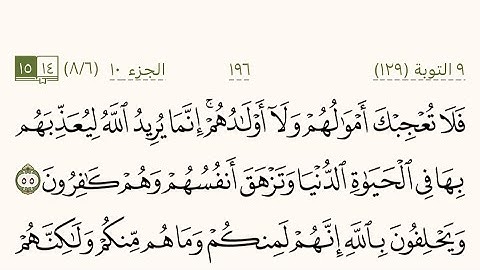 ٩ التوبة (١٢٩) ١٩٦ الجزء ١٠ (٨/٦) ١٤ ١٥
فَلَا تُعْجِبْكَ أَمْوَٰلُهُمْ وَلَآ أَوْلَـٰدُهُمْ ۚ إِنَّمَا يُرِيدُ ٱللَّهُ لِيُعَذِّبَهُم
بِهَا فِى ٱلْحَيَوٰةِ ٱلدُّنْيَا وَتَزْهَقَ أَنفُسُهُمْ وَهُمْ كَـٰفِرُونَ ٥٥
وَيَحْلِفُونَ بِٱللَّهِ إِنَّهُمْ لَمِنكُمْ وَمَا هُم مِّنكُمْ وَلَـٰكِنَّهُمْ